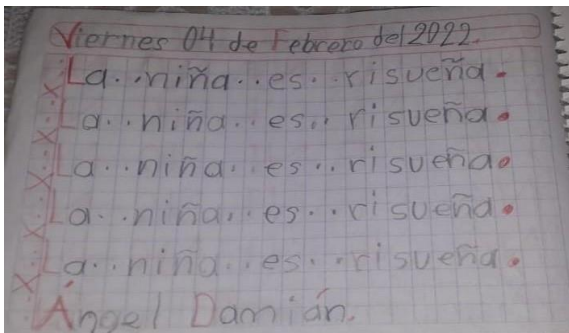 Viernes 04 de Febrero del 2022.
La..niña..es..risueña.
La..niña..es..risueña.
La..niña..es..risueña.
La..niña..es..risueña.
La..niña..es..risueña.
Ángel Damián.